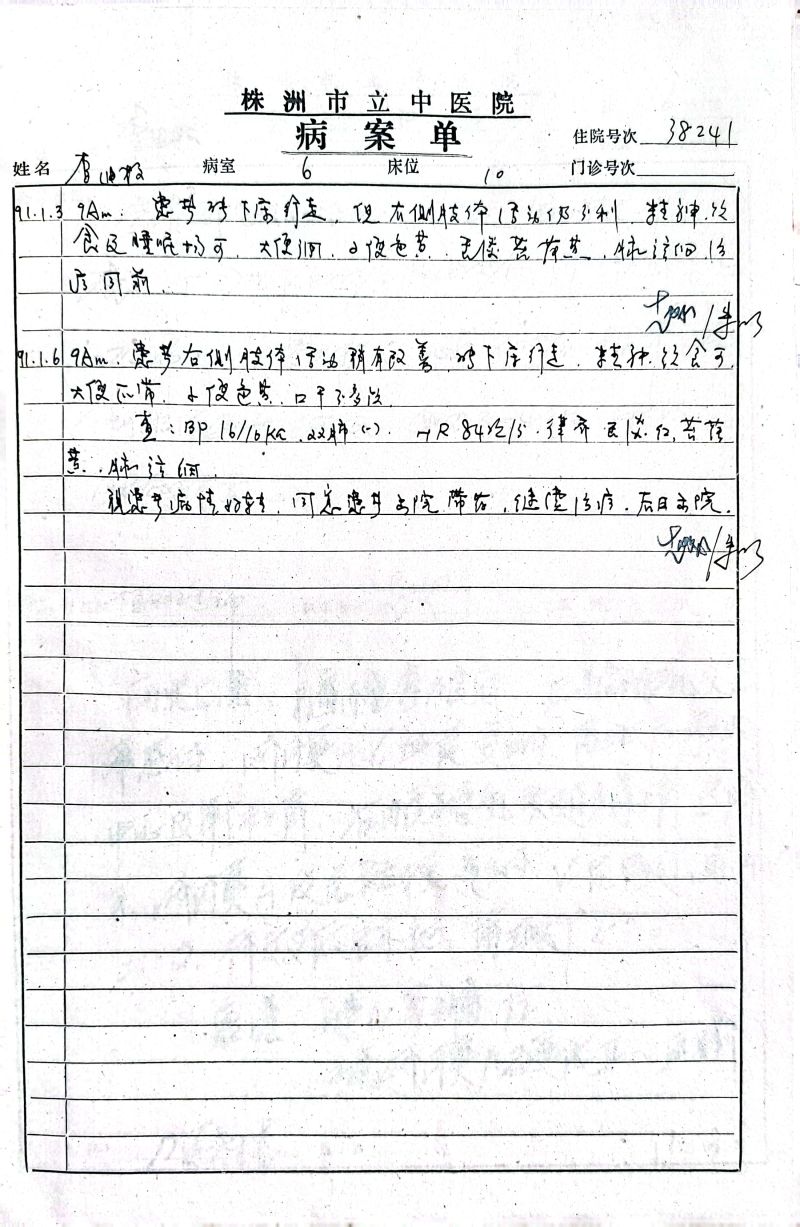 株洲市立中医院
病案单
住院号次 38241
姓名 李 病室 6 床位 10 门诊号次
91.1.3 9Am: 患者能下床行走, 但右侧肢体活动仍不利, 精神, 饮
食及睡眠均可, 大便调, 小便色黄, 舌淡苔薄黄, 脉弦细, 治
疗同前.
91.1.6 9Am. 患者右侧肢体活动稍有改善, 能下床行走. 精神. 饮食可,
大便正常. 小便色黄. 口干不多饮
查: BP 16/10Ka 双肺(-). HR 84次/分. 律齐 舌淡红, 苔薄
黄. 脉弦细.
视患者病情好转, 同意患者出院带药, 继续治疗. 今日出院.